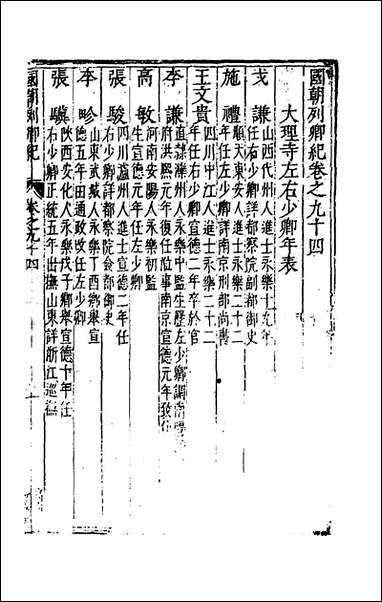 國朝列卿紀卷之九十四
大理寺左右少卿年表
戈謙
山西代州人進士永樂十九年
任右少卿詳都察院副都御史
施禮
順天東安人進士永樂二十二
年任左少卿詳南京刑部尚書
王文貴
四川中江人進士永樂二十二
年任右少卿宣德二年卒於官
李謙
直隸灤州人永樂中監生歷左少卿調南
府洪熙元年復任蒞事南京宣德元年致仕
高敏
河南安陽人永樂初監
生宣德元年任左少卿
張駿
四川瀘州人進士宣德二年任
右少卿詳都察院僉都御史
李畛
山東武城人永樂丁酉鄉舉宣
德五年田通政改任左少卿
張驥
陝西安化人永樂戊子鄉舉宣德十年任
右少卿正統五年出撫山東詳浙江巡撫
國朝列卿紀
卷之九十四